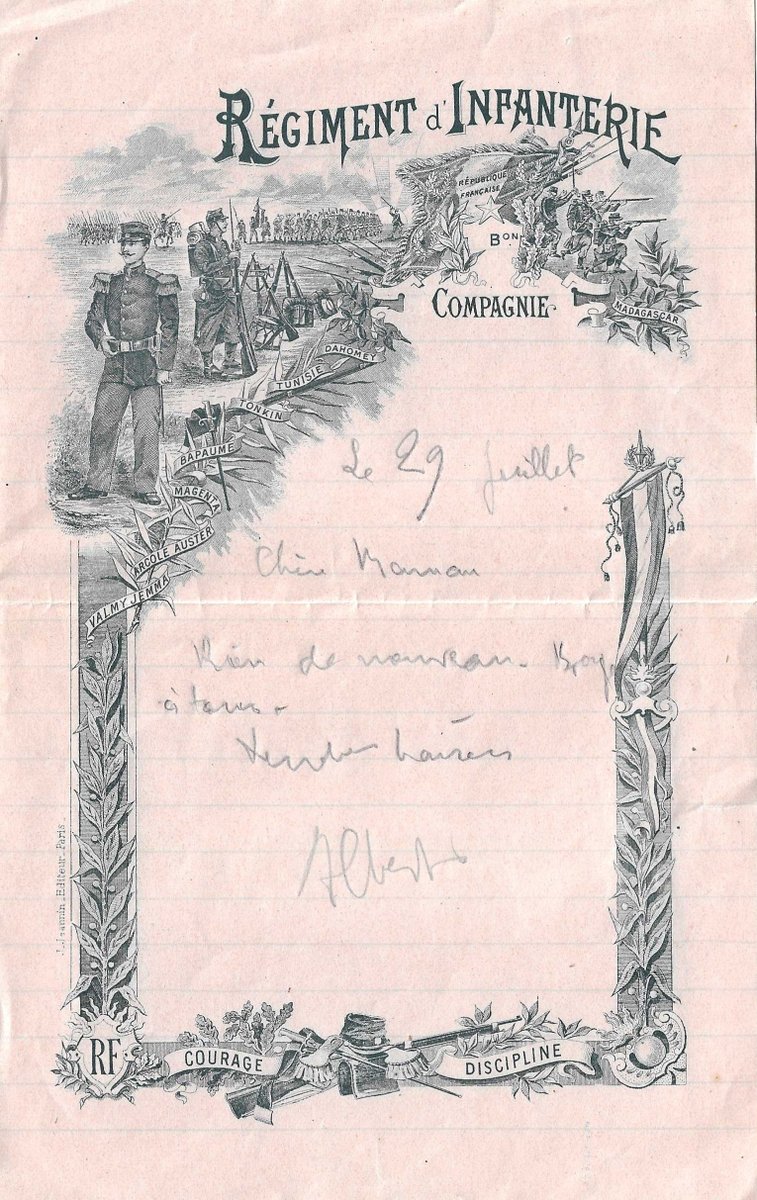 RÉGIMENT d'INFANTERIE
RÉPUBLIQUE
FRANÇAISE
Bon
COMPAGNIE
MADAGASCAR
DAHOMEY
TUNISIE
TONKIN
BAPAUME
MAGENTA
ARCOLE AUSTER
VALMY JEMMA
Le 29 Juillet
Chère Maman
Rien de nouveau.
à tous.
Tendres baisers
Albert
Editeur Paris
RF
COURAGE
DISCIPLINE